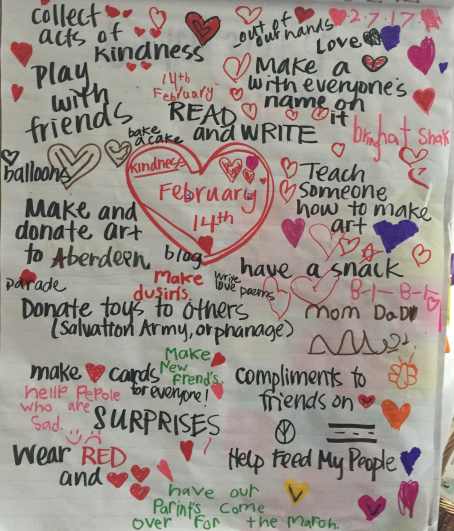 collect
acts of
kindness
out of
our hands
Love
2.7.17
Play
with
friends
14th
February
Make a
with everyone's
name on
it
READ
and WRITE
bake
a cake
balloons
kindness
February
14th
Teach
someone
how to make
art
Make and
donate art
to Aberdeen
blog
have a snack
parade
Make
dusirts
write
love poems
B-1-B-1
Donate toys to others
(Salvation Army, orphanage)
mom DaD
Make
New
frend's
make cards
for everyone!
compliments to
friends on
hellp Pepole
who are
Sad.
SURPRISES
Wear RED
and
Help Feed My People
have our
Parints Come
over for the march.